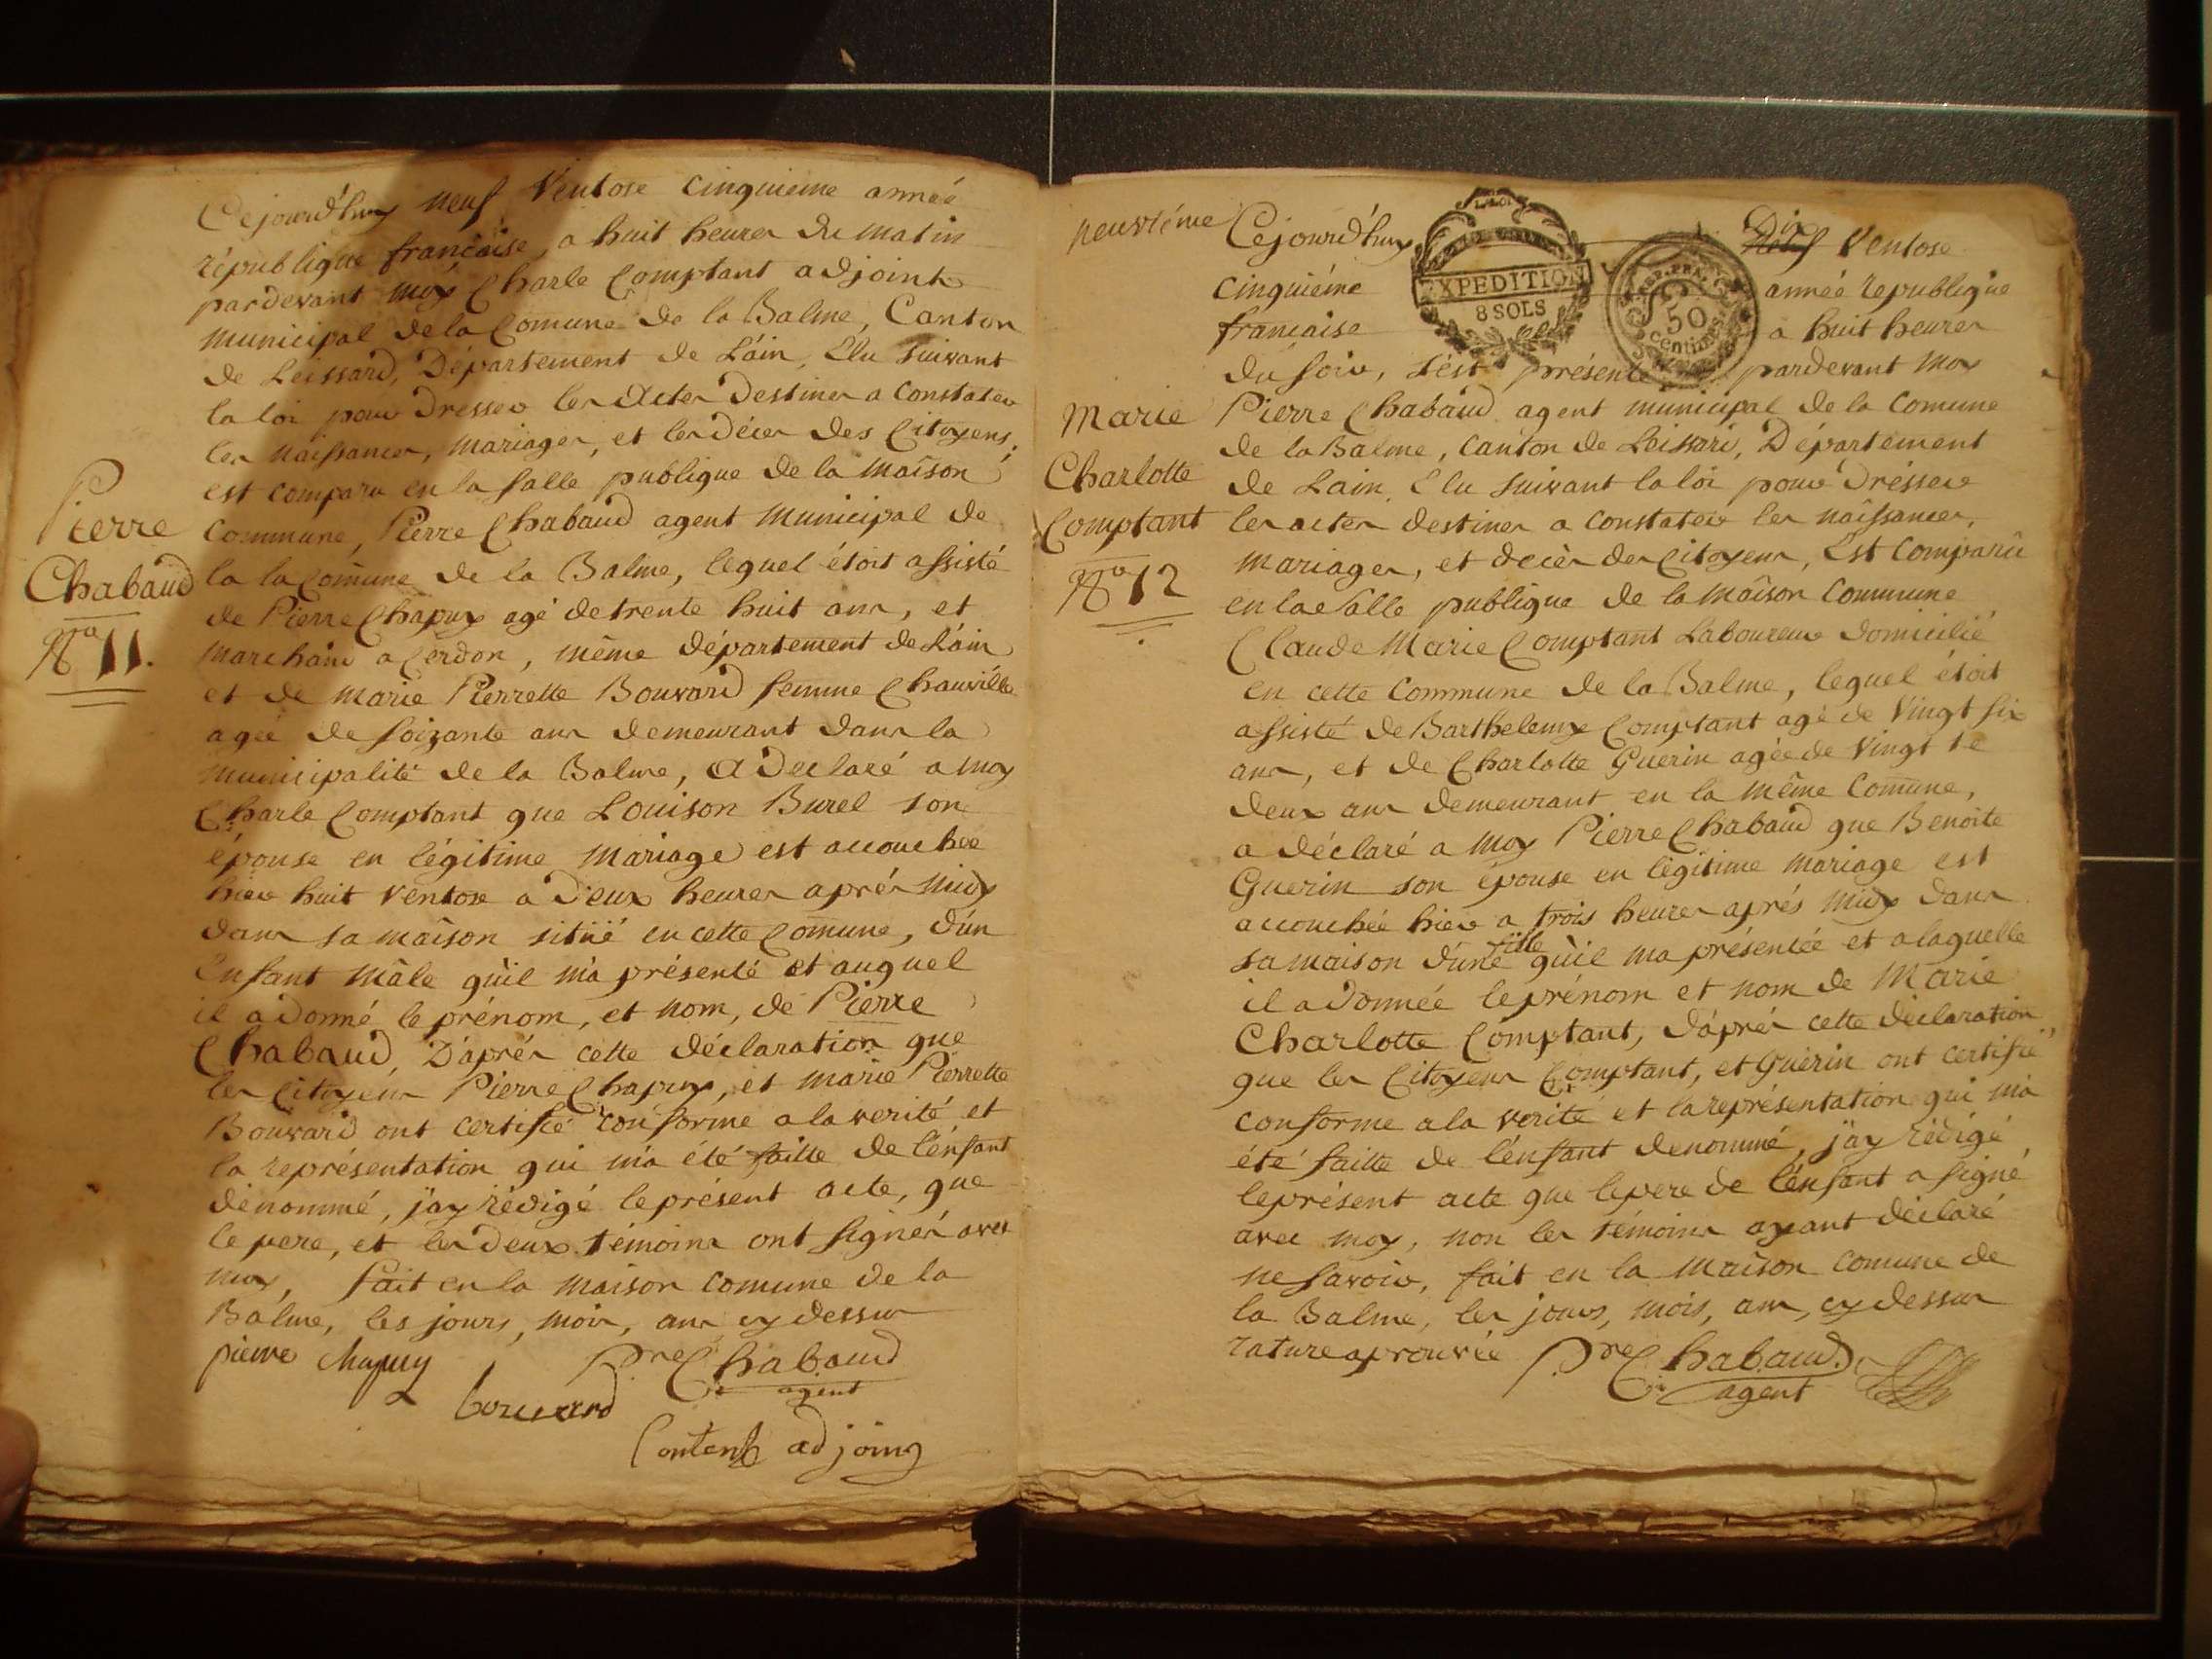 Cejourd'huy neuf Ventose cinquieme année
république française, a huit heures du matin
pardevant moy Charle Comptant adjoint
municipal de la Comune de la Balme, Canton
de Leissard, Département de L'ain, Elu suivant
la loi pour dresser les Actes destines a constater
les naissances, mariages, et les déces des Citoyens,
est comparu en la salle publique de la maison
Commune, Pierre Chabaud agent municipal de
la la Comune de la Balme, lequel étoit assisté
de Pierre Chapuy agé de trente huit ans, et
marchand a Cerdon, même département de L'ain
et de Marie Pierrette Bouvard femme Chauville
agée de soizante ans demeurant dans la
municipalité de la Balme, a declaré a moy
Charle Comptant que Louison Burel son
épouse en légitime mariage est accouchée
hier huit Ventose a deux heures aprés midy
dans sa maison sitüé en cette Comune, d'un
Enfant mâle qu'il m'a présenté et auquel
il a donné le prénom, et nom, de Pierre
Chabaud, D'aprés cette déclaration que
les Citoyens Pierre Chapuy, et Marie Pierrette
Bouvard ont certifié conforme a la verité et
la représentation qui m'a été faitte de l'énfant
dénommé, j'ay rédigé le présent acte, que
le pere, et les deux témoins ont signés avec
moy, fait en la maison comune de la
Balme, les jours, mois, ans cy dessus
pierre Chapuy
Pre Chabaud
agent
bouvard
Contant adjoing
Pierre
Chabaud
No 11.
neuvième
Cejourd'huy Dix Neuf Ventose
cinquiéme année republique
française a huit heures
EXPEDITION
8 SOLS
REP. FRA.
50
centimes
du soir, s'ést présenté pardevant moy
Pierre Chabaud agent municipal de la Comune
de la Balme, canton de Leissard, Département
de Lain, Elu suivant la loi pour dresser
les actes destines a constater les naissances,
mariages, et decès des Citoyens, Est comparû
en la salle publique de la maison Commune
Claude Marie Comptant Laboureur domicilié
en cette Commune de la Balme, lequel étoit
assisté de Barthelemy Comptant agé de vingt six
ans, et de Charlotte Guerin agée de vingt te
deux ans demeurant en la même Comune,
a déclaré a moy Pierre Chabaud que Benoite
Guerin son épouse en légitime mariage est
accouchée hier a trois heures aprés midy dans
sa maison d'une fille qu'il ma présentée et a laquelle
il a donnée le prénom et nom de Marie
Charlotte Comptant, d'aprés cette déclaration
que les Citoyens Comptant, et Guerin ont certifié
conforme a la verité et la représentation qui m'a
été faitte de l'énfant denommé, j'ay rédigé
le présent acte que le pere de l'énfant a signé
avec moy, non les témoins ayant déclaré
ne savoir, fait en la maison comune de
la Balme, les jours, mois, ans, cy dessus
rature aprouvée Pre Chabaud
agent
Marie
Charlotte
Comptant
No 12